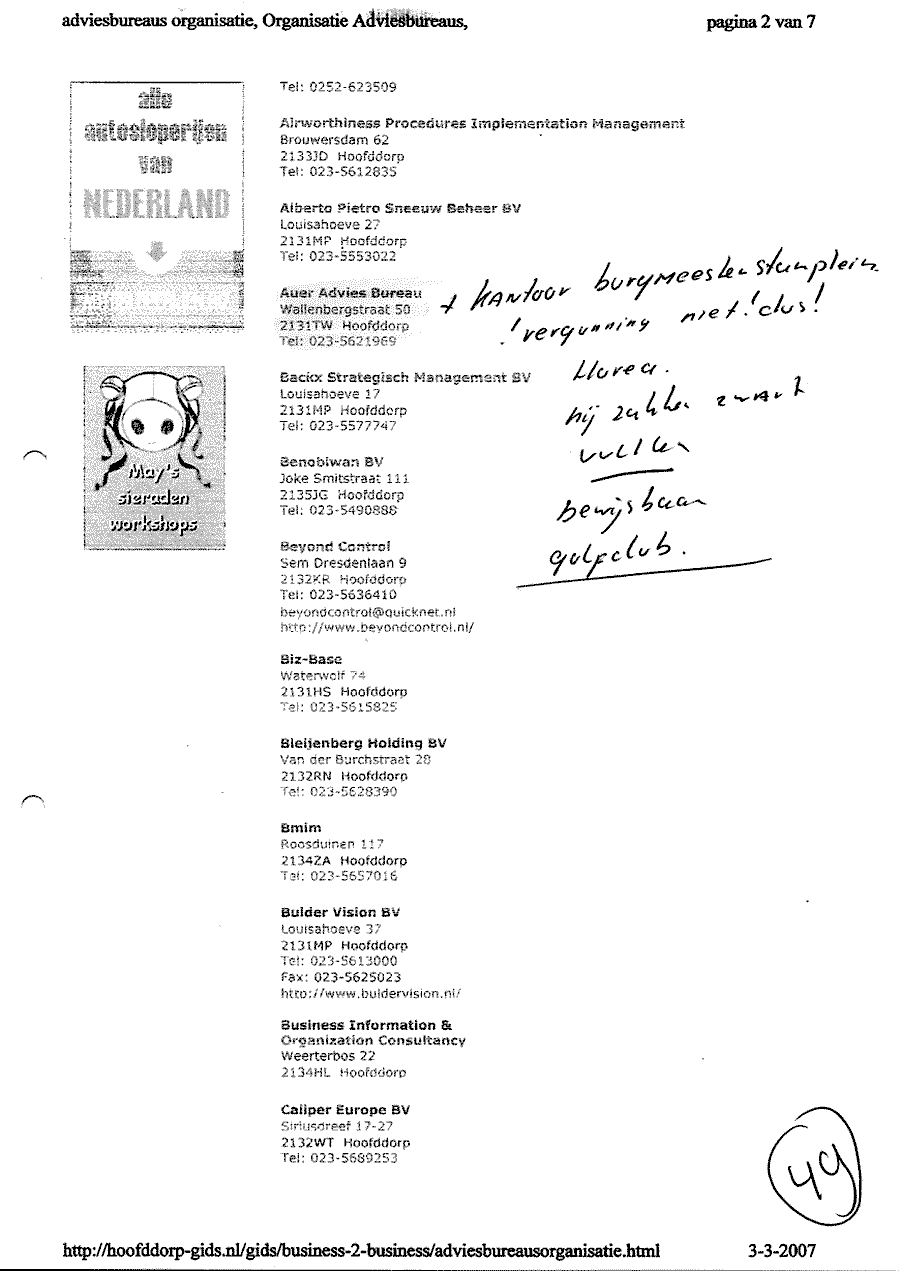 adviesbureaus organisatie, Organisatie Adviesbureaus,
pagina 2 van 7
alle
autosloperijen
van
NEDERLAND
May's
sieraden
workshops
Tel: 0252-623509
Airworthiness Procedures Implementation Management
Brouwersdam 62
2133JD Hoofddorp
Tel: 023-5612835
Alberto Pietro Sneeuw Beheer BV
Louisahoeve 27
2131MP Hoofddorp
Tel: 023-5553022
Auer Advies Bureau
Wallenbergstraat 50
2131TW Hoofddorp
Tel: 023-5621969
+ kantoor burgmeester stamplein
! vergunning niet! dus!
Horeca.
hij zakken zwart
vullen
bewijsbaar
golfclub.
Backx Strategisch Management BV
Louisahoeve 17
2131MP Hoofddorp
Tel: 023-5577747
Benobiwan BV
Joke Smitstraat 111
2135JG Hoofddorp
Tel: 023-5490888
Beyond Control
Sem Dresdenlaan 9
2132KR Hoofddorp
Tel: 023-5636410
beyondcontrol@quicknet.nl
http://www.beyondcontrol.nl/
Biz-Base
Waterwolf 74
2131HS Hoofddorp
Tel: 023-5615825
Bleijenberg Holding BV
Van der Burchstraat 28
2132RN Hoofddorp
Tel: 023-5628390
Bmim
Roosduinen 117
2134ZA Hoofddorp
Tel: 023-5657016
Bulder Vision BV
Louisahoeve 37
2131MP Hoofddorp
Tel: 023-5613000
Fax: 023-5625023
http://www.buldervision.nl/
Business Information &
Organization Consultancy
Weerterbos 22
2134HL Hoofddorp
Caliper Europe BV
Siriusdreef 17-27
2132WT Hoofddorp
Tel: 023-5689253
49
http://hoofddorp-gids.nl/gids/business-2-business/adviesbureausorganisatie.html
3-3-2007